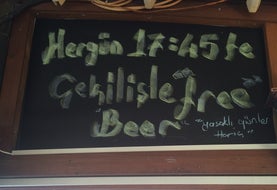 Hergün 17:45'te
Çekilişle free
Beer
"yasaklı günler
Hariç"